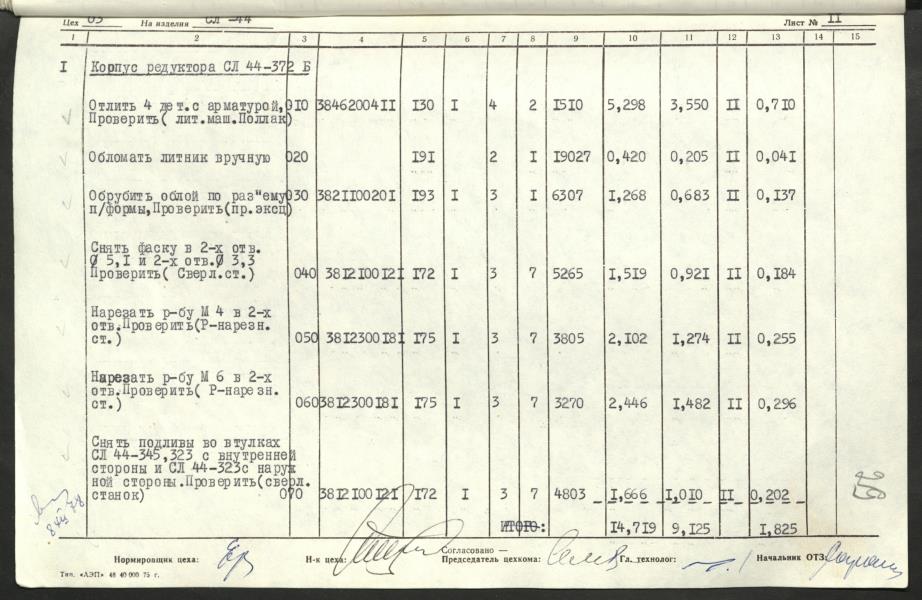 Цех 03 На изделия СЛ -44 Лист № II
1 2 3 4 5 6 7 8 9 10 11 12 13 14 15
I Корпус редуктора СЛ 44-372 Б
Отлить 4 дет.с арматурой, 010 38462004II I30 I 4 2 I5I0 5,298 3,550 II 0,7I0
Проверить( лит.маш.Поллак)
Обломать литник вручную 020 I9I 2 I I9027 0,420 0,205 II 0,04I
Обрубить облой по раз"ему 030 382II0020I I93 I 3 I 6307 I,268 0,683 II 0,I37
п/формы,Проверить(пр.эксц)
Снять фаску в 2-х отв.
Ø 5,I и 2-х отв.Ø 3,3
Проверить( Сверл.ст.) 040 38I2I00I2I I72 I 3 7 5265 I,5I9 0,92I II 0,I84
Нарезать р-бу М 4 в 2-х
отв.Проверить(Р-нарезн.
ст.) 050 38I2300I8I I75 I 3 7 3805 2,I02 I,274 II 0,255
Нарезать р-бу М 6 в 2-х
отв.Проверить( Р-нарезн.
ст.) 060 38I2300I8I I75 I 3 7 3270 2,446 I,482 II 0,296
Снять подливы во втулках
СЛ 44-345,323 с внутренней
стороны и СЛ 44-323с наруж
ной стороны.Проверить(сверл.
станок) 070 38I2I00I2I I72 I 3 7 4803 I,666 I,0I0 II 0,202
ИТОГО: I4,7I9 9,I25 I,825
Согласовано —
Нормировщик цеха: Н-к цеха: Председатель цехкома: Гл. технолог: Начальник ОТЗ:
Тип. «АЭП» 48 40 000 75 г.